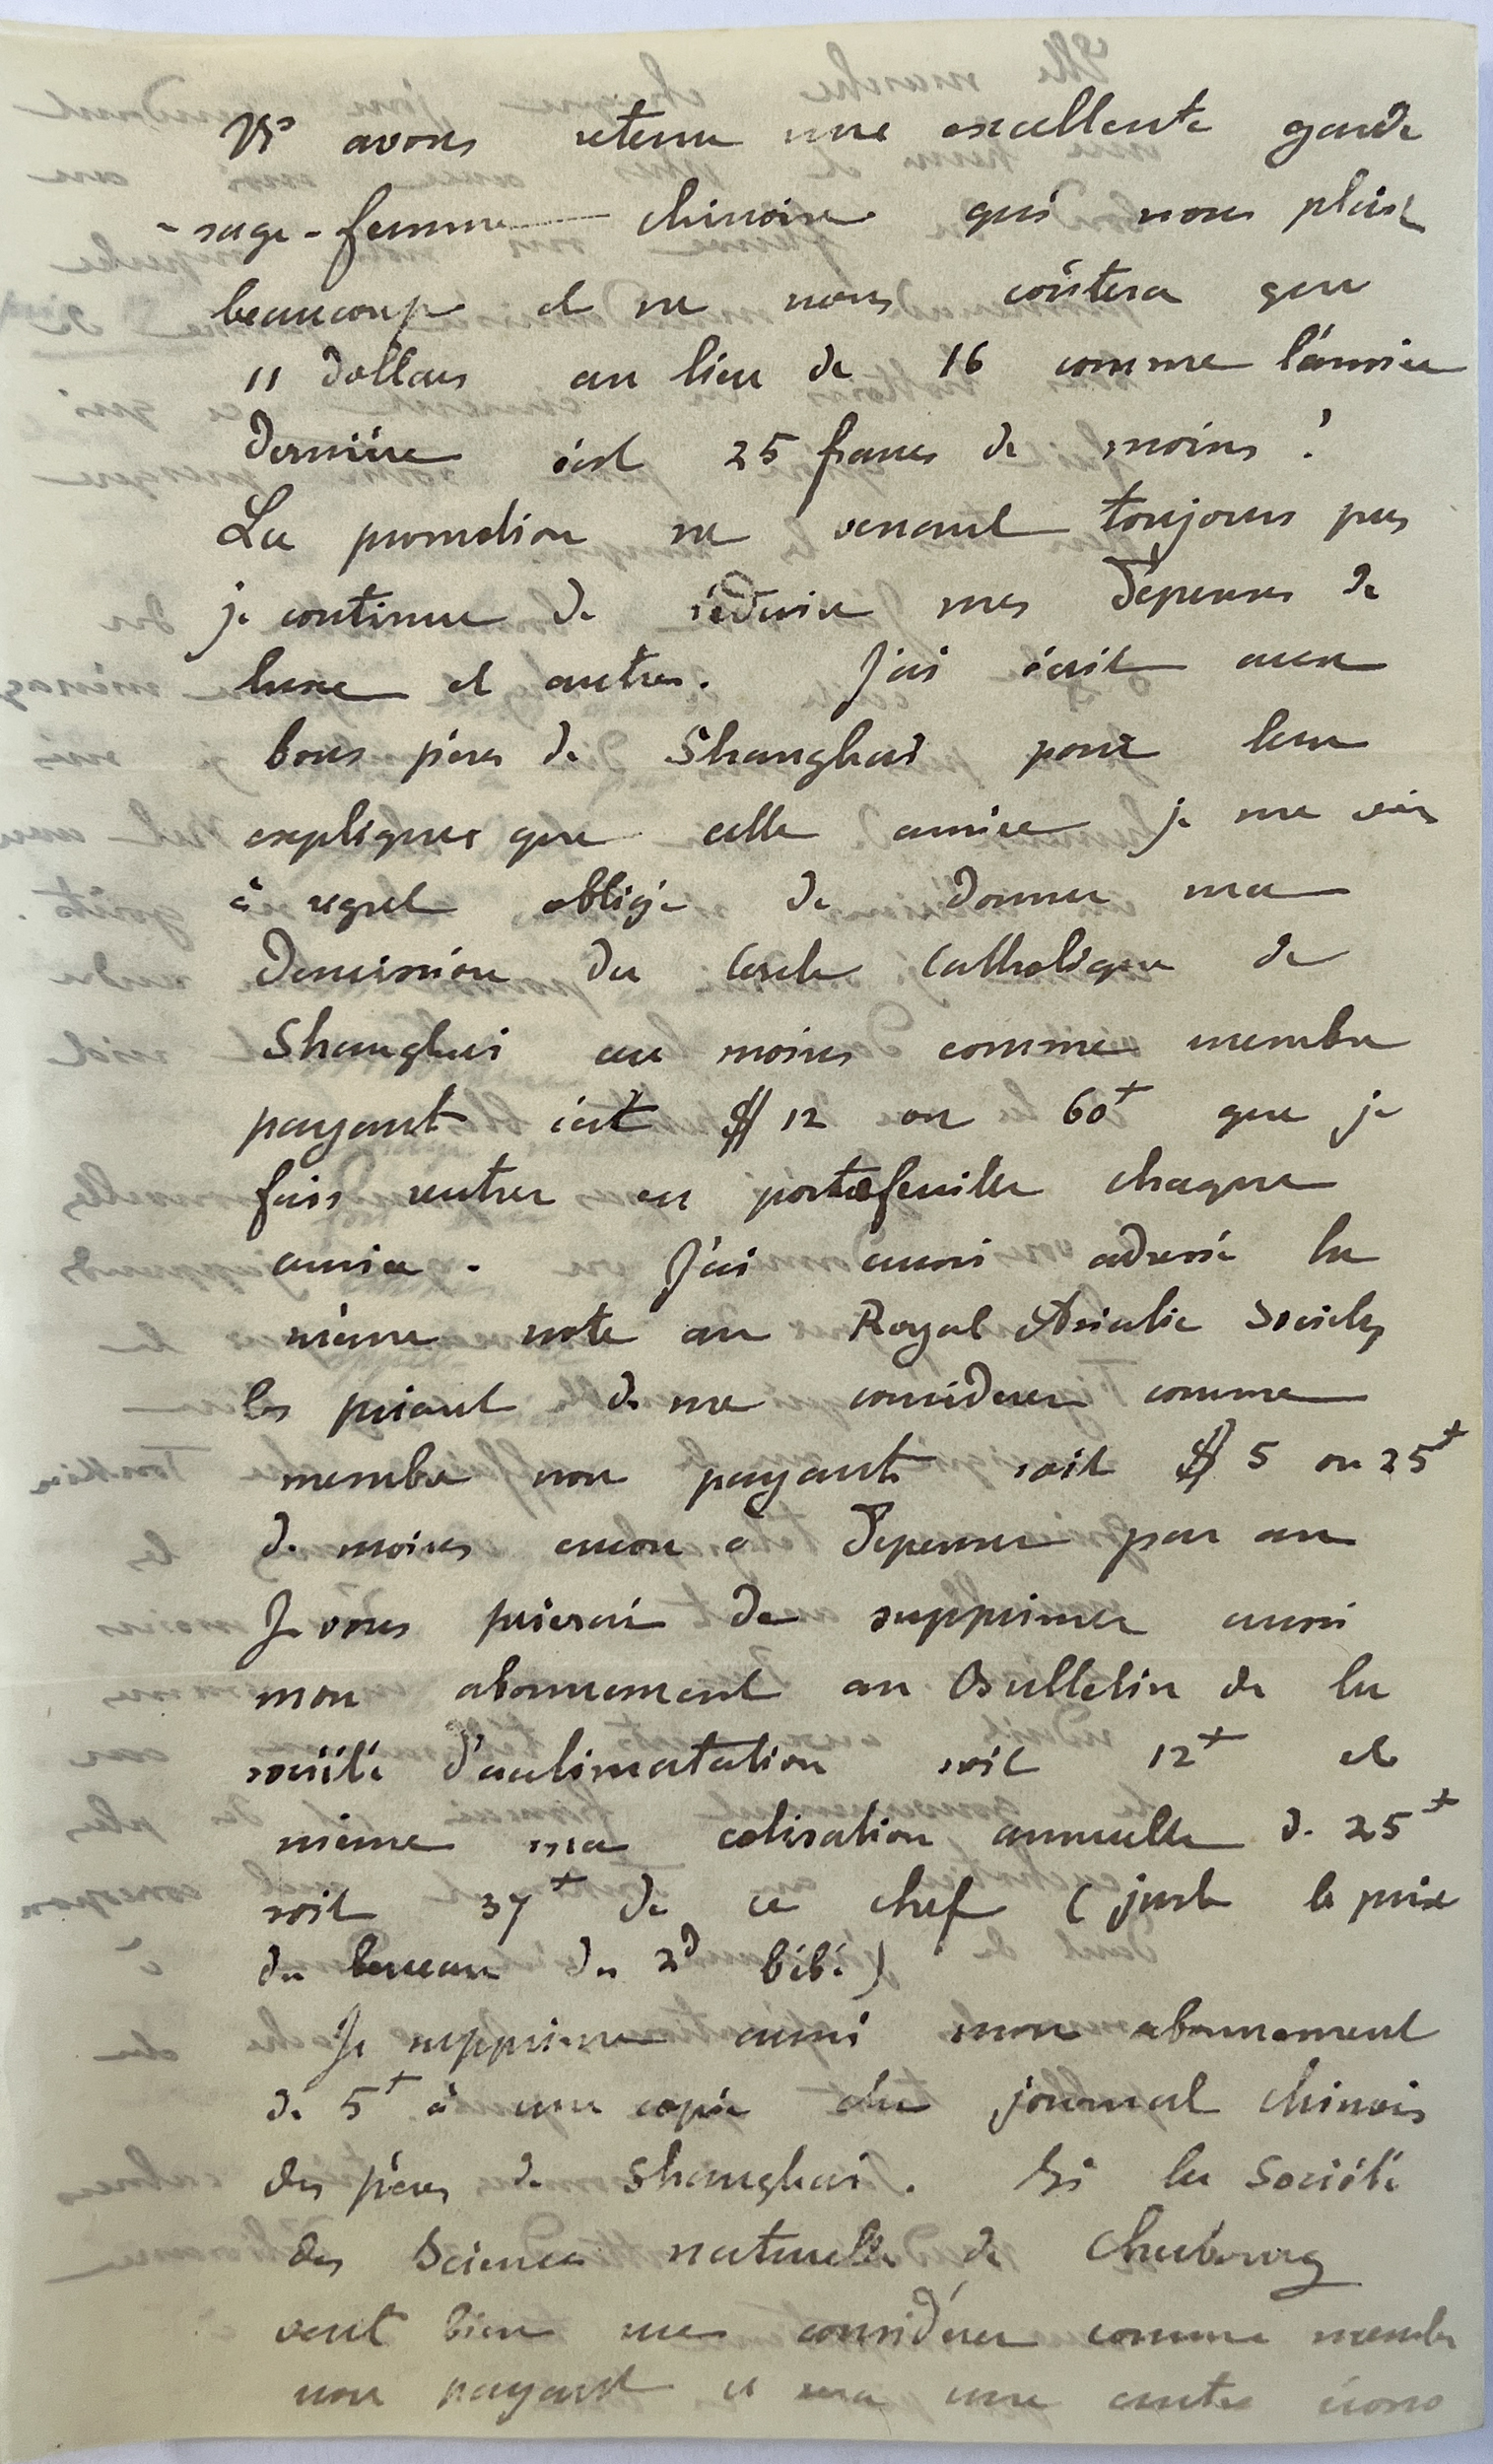 Ns avons retenu une excellente garde
- sage-femme chinoise qui nous plait
beaucoup et ne nous coûtera que
11 dollars au lieu de 16 comme l'année
dernière c'est 25 francs de moins !
La promotion ne venant toujours pas
je continue de réduire mes dépenses de
luxe et autres. J'ai écrit aux
bons pères de Shanghai pour leur
expliquer que cette année je me vois
à regret obligé de donner ma
demission du Cercle Catholique de
Shanghai au moins comme membre
payant c'est $ 12 ou 60 f que je
fais rentrer en portefeuille chaque
année. J'ai aussi adressé la
même note au Royal Asiatic Society
les priant de me considerer comme
membre non payant soit $ 5 ou 25 f
de moins encore à depenser par an
Je vous prierai de supprimer aussi
mon abonnement au Bulletin de la
société d'acclimatation soit 12 f et
même ma cotisation annuelle de 25 f
soit 37 f de ce chef (juste le prix
du berceau du 2d bébé)
Je supprime aussi mon abonnement
de 5 f à une copie du journal chinois
des pères de Shanghai. Si la Société
des Sciences naturelles de Cherbourg
veut bien me considérer comme membre
non payant ce sera une autre écono